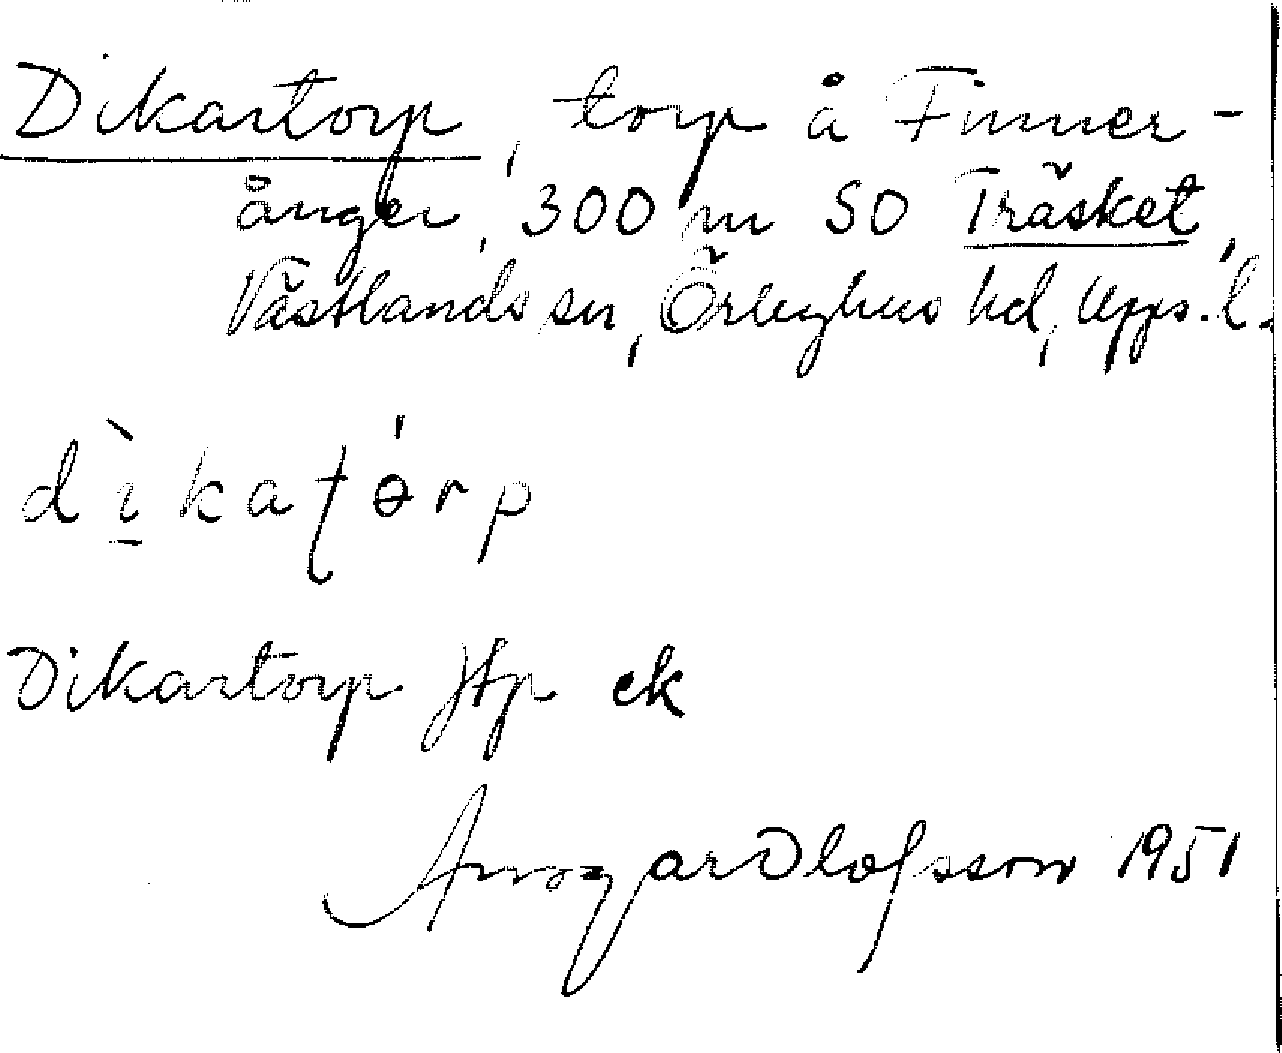 Dikartorp, torp å Finner-
ånger, 300 m SO Träsket,
Västlands sn, Örbyhus hd, Upps. l.
dìkatɵ́rp
Dikartorp Jfp ek
Ansgar Olofsson 1951